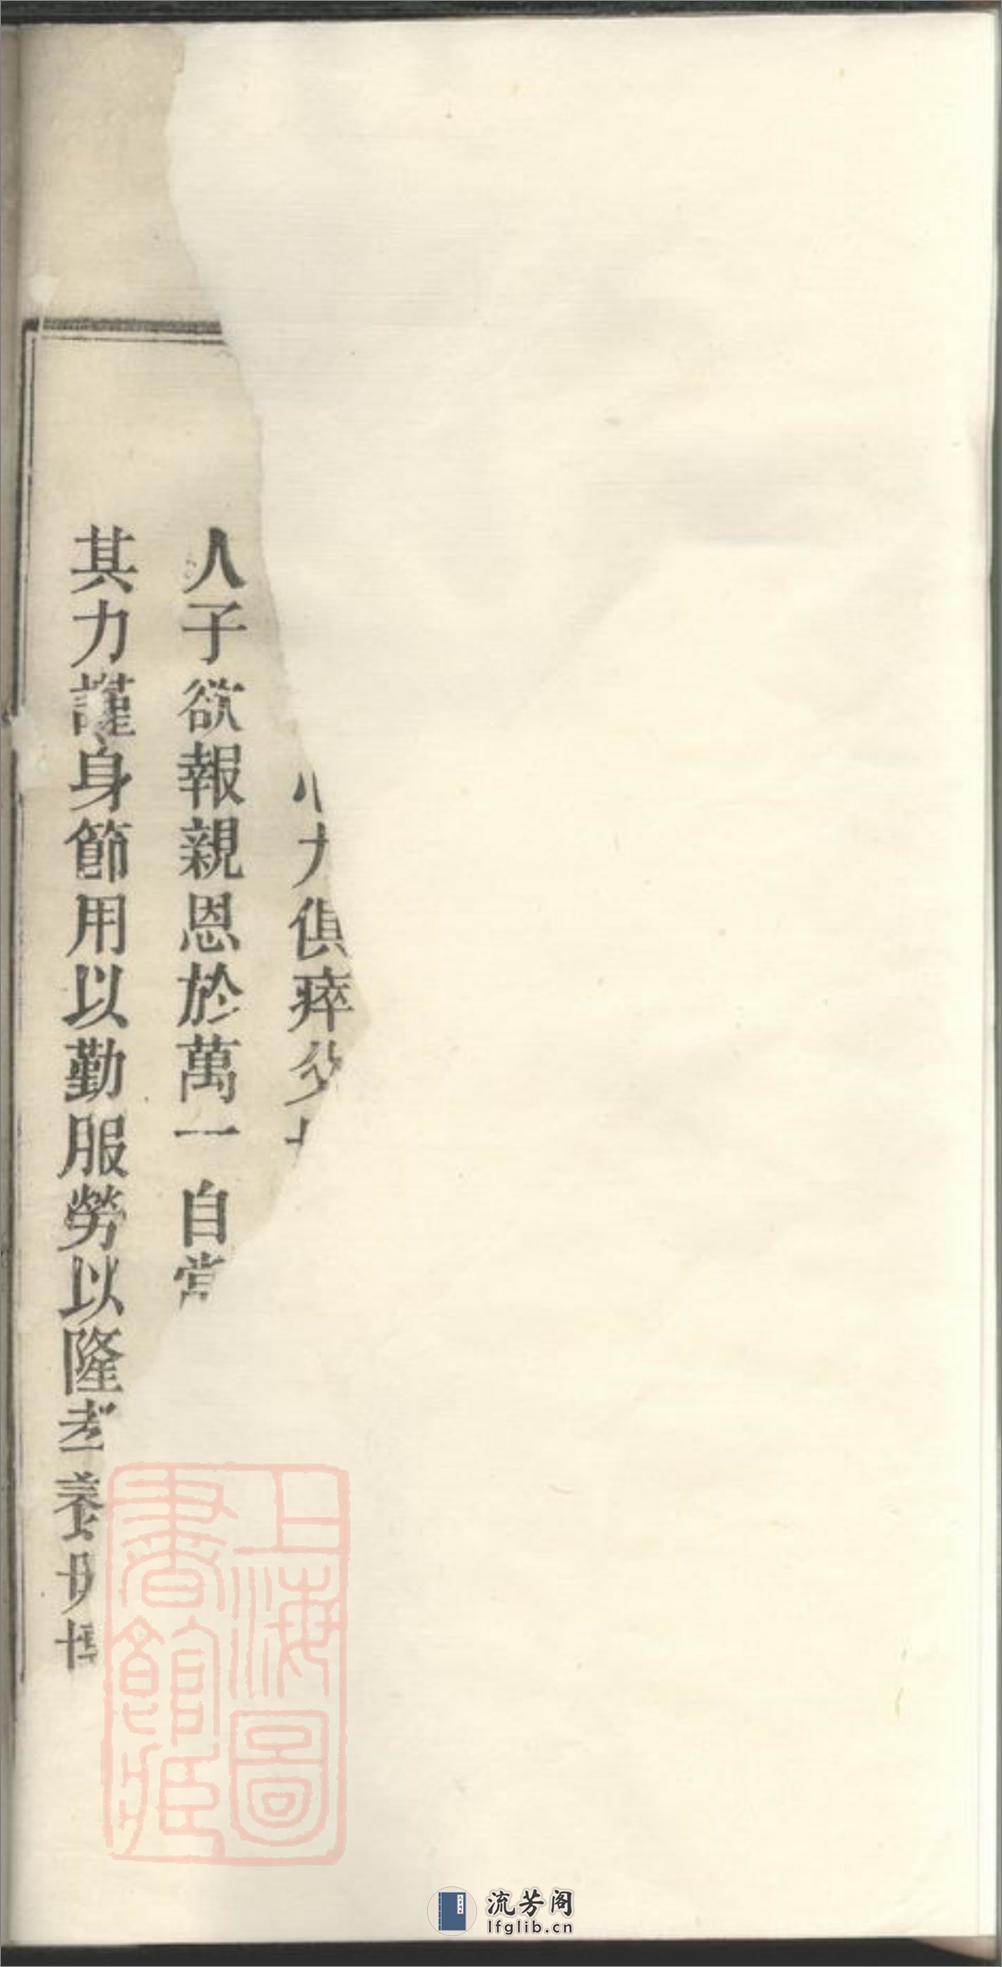 俱瘁
人子欲報親恩於萬一自
其力謹身節用以勤服勞以隆孝養毋博
上海圖
書館藏
流芳阁
lfglib.cn